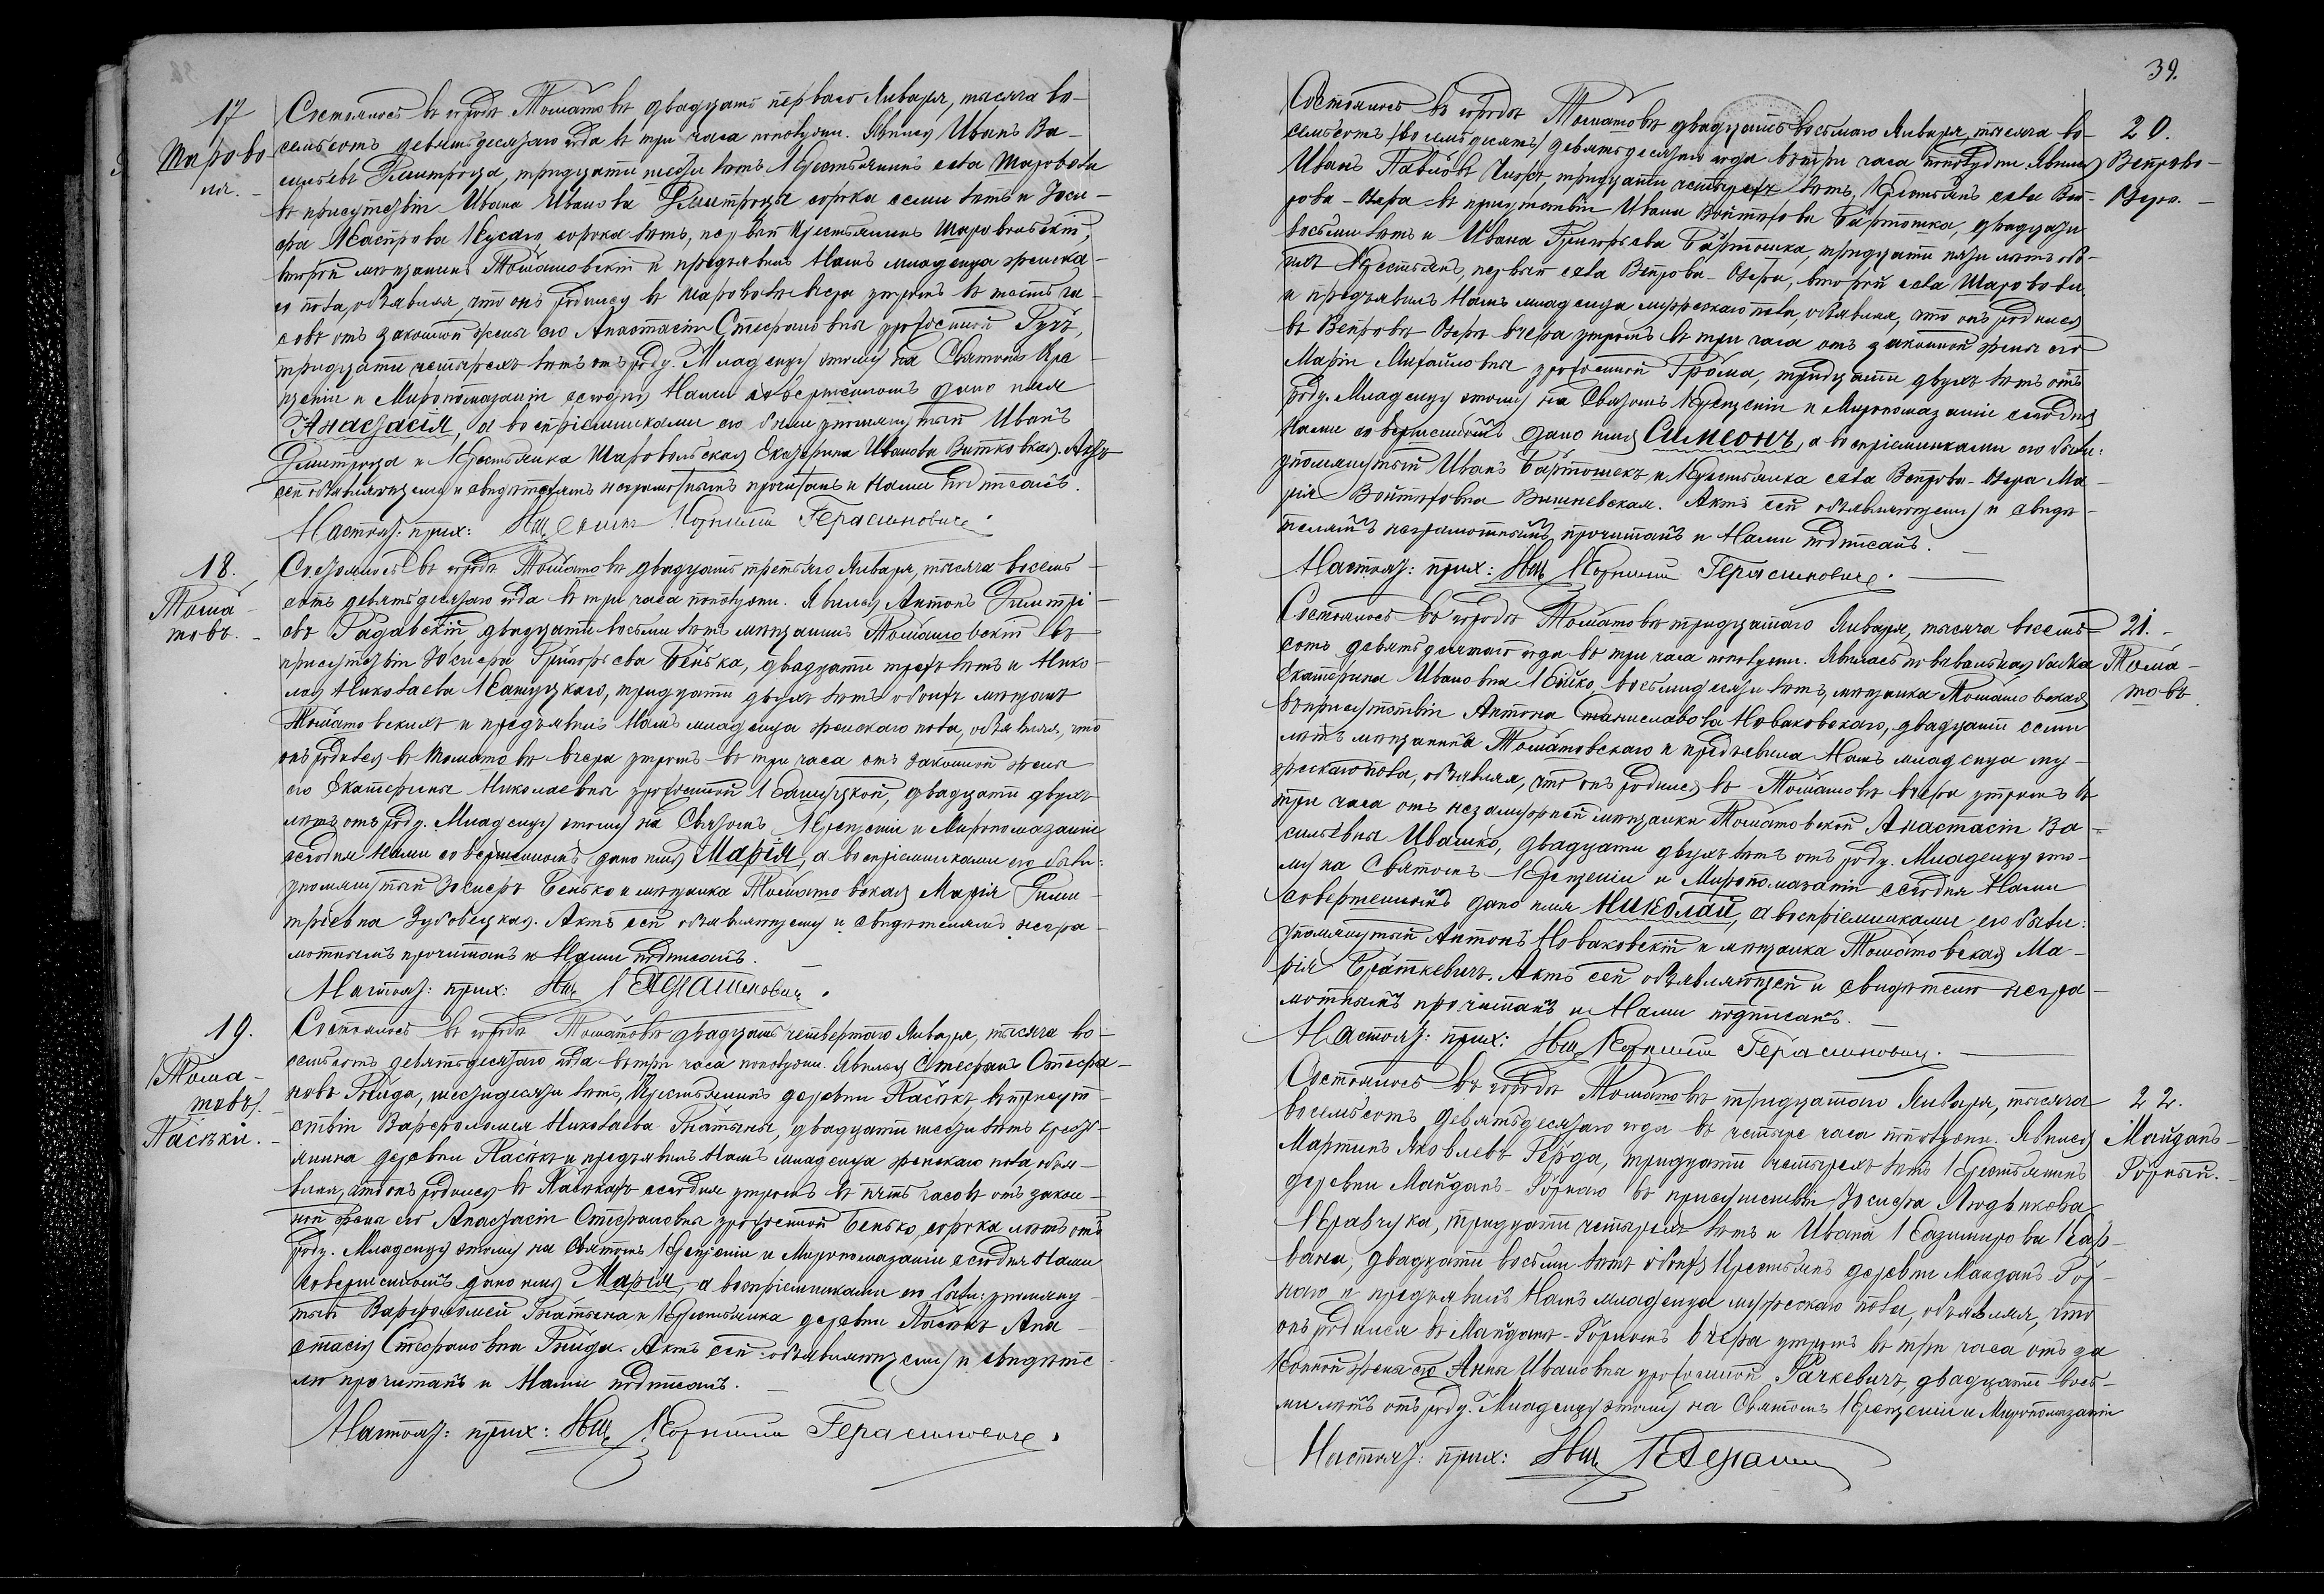 17
Шарово-
ля. -
Состоялось въ городѣ Томашовѣ двадцать перваго Января, тысяча во-
семьсотъ девяностаго года въ три часа пополудни. Явился Иванъ Ва-
сильевъ Дмитроца, тридцати шести лѣтъ Крестьянинъ села Шароволя
въ присутствіи Ивана Иванова Дмитроцы сорока семи лѣтъ и Іоси-
фа Кусаго, сорока лѣтъ, первый Крестьянинъ Шаровольскій,
второй мѣщанинъ Томашовскій и предъявилъ Намъ младенца женска-
го пола, объявляя, что онъ родился въ Шароволѣ вчера утромъ въ шесть ча-
совъ отъ законной жены его Анастасіи Стефановны урожденной Гузъ,
тридцати четырехъ лѣтъ отъ роду. Младенцу этому на Святомъ Кре-
щеніи и Миропомазаніи сегодня Нами совершенномъ дано имя
Анастасія, а воспріемниками его были упомянутый Иванъ
Дмитроца и Крестьянка Шаровольская Екатерина Иванова Витковская. Актъ
сей объявляющему и свидѣтелямъ неграмотнымъ прочитанъ и Нами подписанъ.
Настоят: прих: Свящ Корнилій Герасимовичъ.
18.
Тома-
шовъ. -
Состоялось въ городѣ Томашовѣ двадцать третьяго Января, тысяча восемь-
сотъ девятьдесятаго года въ три часа пополудни. Явился Антонъ Димитрі-
евъ Гадавскій двадцати восьми лѣтъ мѣщанинъ Томашовскій въ
присутствіи Іосифа Григорьева Бенька, двадцати трехъ лѣтъ и Нико-
лая Николаева Кашуцкаго, тридцати двухъ лѣтъ обоихъ мѣщанъ
Томашовскихъ и предъявилъ Намъ младенца женскаго пола, объявляя, что
онъ родился въ Томашовѣ вчера утромъ въ три часа отъ законной жены
его Екатерины Николаевны урожденной Кашуцкой, двадцати двухъ
лѣтъ отъ роду. Младенцу этому на Святомъ Крещеніи и Миропомазаніи
сегодня Нами совершенномъ дано имя Марія, а воспріемниками его были:
упомянутый Іосифъ Бенько и мѣщанка Томашовская Марія Дими-
тріевна Зубовецкая. Актъ сей объявляющему и свидѣтелямъ негра-
мотнымъ прочитанъ и Нами подписанъ.
Настоят: прих: Свящ КГерасимовичъ.
19.
Тома-
шовъ.
Пасѣки. -
Состоялось въ городѣ Томашовѣ двадцать четвертаго Января, тысяча во-
семьсотъ девятьдесятаго года въ три часа пополудни. Явился Стефанъ Стефа-
новъ шестидесяти лѣтъ, Крестьянинъ деревни Пасѣкъ въ присут-
ствіи Варфоломея Николаева двадцати шести лѣтъ кресть-
янина деревни Пасѣкъ и предъявилъ Намъ младенца женскаго пола, объя-
вляя, что онъ родился въ Пасѣкахъ сегодня утромъ въ пять часовъ отъ закон-
ной жены его Анастасіи Стефановны урожденной Бенько, сорока лѣтъ отъ
роду. Младенцу этому на Святомъ Крещеніи и Миропомазаніи сегодня Нами
совершенномъ дано имя Марія, а воспріемниками его были: упомяну-
тый Варфоломей и Крестьянка деревни Пасѣкъ Ана-
стасія Стефановна Актъ сей объявляющему и свидѣте-
лю прочитанъ и Нами подписанъ. -
Настоят: прих: Свящ Корнилій Герасимовичъ.
39.
20.
Вепрово-
Озеро. -
Состоялось въ городѣ Томашовѣ двадцать восьмаго Января, тысяча во-
семьсотъ (восемьдесятъ) девятьдесятаго года въ три часа пополудни. Явился
Иванъ Павловъ тридцати четырехъ лѣтъ, Крестьянъ села Веп-
рова-Озера въ присутствіи Ивана Войтѣхова Бартошка, двадцати
восьми лѣтъ и Ивана Григорьева Бартошка, тридцати пяти лѣтъ обо-
ихъ Крестьянъ, первый села Вепрова-Озера, второй села Шароволи
и предъявилъ Намъ младенца мужескаго пола, объявляя, что онъ родился
въ Вепровѣ Озерѣ вчера утромъ въ три часа отъ законной жены его
Маріи Михайловны урожденной Грома, тридцати двухъ лѣтъ отъ
роду. Младенцу этому на Святомъ Крещеніи и Миропомазаніи сегодня
Нами совершенномъ дано имя Симеонъ, а воспріемниками его были:
упомянутый Иванъ Бартошекъ, и Крестьянка села Вепрова-Озера Ма-
рія Войтѣховна Вишневская. Актъ сей объявляющему и свидѣ-
телямъ неграмотнымъ прочитанъ и Нами подписанъ. -
Настоят: прих: Свящ Корнилій Герасимовичъ. -
21. -
Тома-
шовъ
Состоялось въ городѣ Томашовѣ тридцатаго Января, тысяча восемь-
сотъ девятьдесятаго года въ три часа пополудни. Явилась повивальная бабка
Екатерина Ивановна восьмидесяти лѣтъ, мѣщанка Томашовская
въ присутствіи Антона Станиславова Новаковскаго, двадцати семи
лѣтъ мѣщанина Томашовскаго и предъявила Намъ младенца му-
жескаго пола, объявляя, что онъ родился въ Томашовѣ вчера утромъ въ
три часа отъ незамужней мѣщанки Томашовской Анастасіи Ва-
сильевны Ивашко, двадцати двухъ лѣтъ отъ роду. Младенцу это-
му на Святомъ Крещеніи и Миропомазаніи сегодня Нами
совершенномъ дано имя Николай, а воспріемниками его были:
упомянутый Антонъ Новаковскій и мѣщанка Томашовская Ма-
рія Браткевичъ. Актъ сей объявляющей и свидѣтелю негра-
мотнымъ прочитанъ и Нами подписанъ. -
Настоят: прих: Свящ Корнилій Герасимовичъ. -
22.
Майданъ-
Горный. -
Состоялось въ городѣ Томашовѣ тридцатаго Января, тысяча
восемьсотъ девятьдесятаго года въ четыре часа пополудни. Явился
Мартинъ Яковлевъ Герда, тридцати четырехъ лѣтъ Крестьянинъ
деревни Майданъ-Горнаго въ присутствіи Іосифа Людвикова
Кравчука, тридцати четырехъ лѣтъ и Ивана Казимирова Кар-
вана, двадцати восьми лѣтъ обоихъ Крестьянъ деревни Майданъ-Гор-
наго и предъявилъ Намъ младенца мужескаго пола, объявляя, что
онъ родился въ Майданѣ-Горномъ вчера утромъ въ три часа отъ за-
конной жены его Анны Ивановны урожденной Рачкевичъ, двадцати вось-
ми лѣтъ отъ роду. Младенцу этому на Святомъ Крещеніи и Миропомазаніи
Настоят: прих: Свящ КГерасим